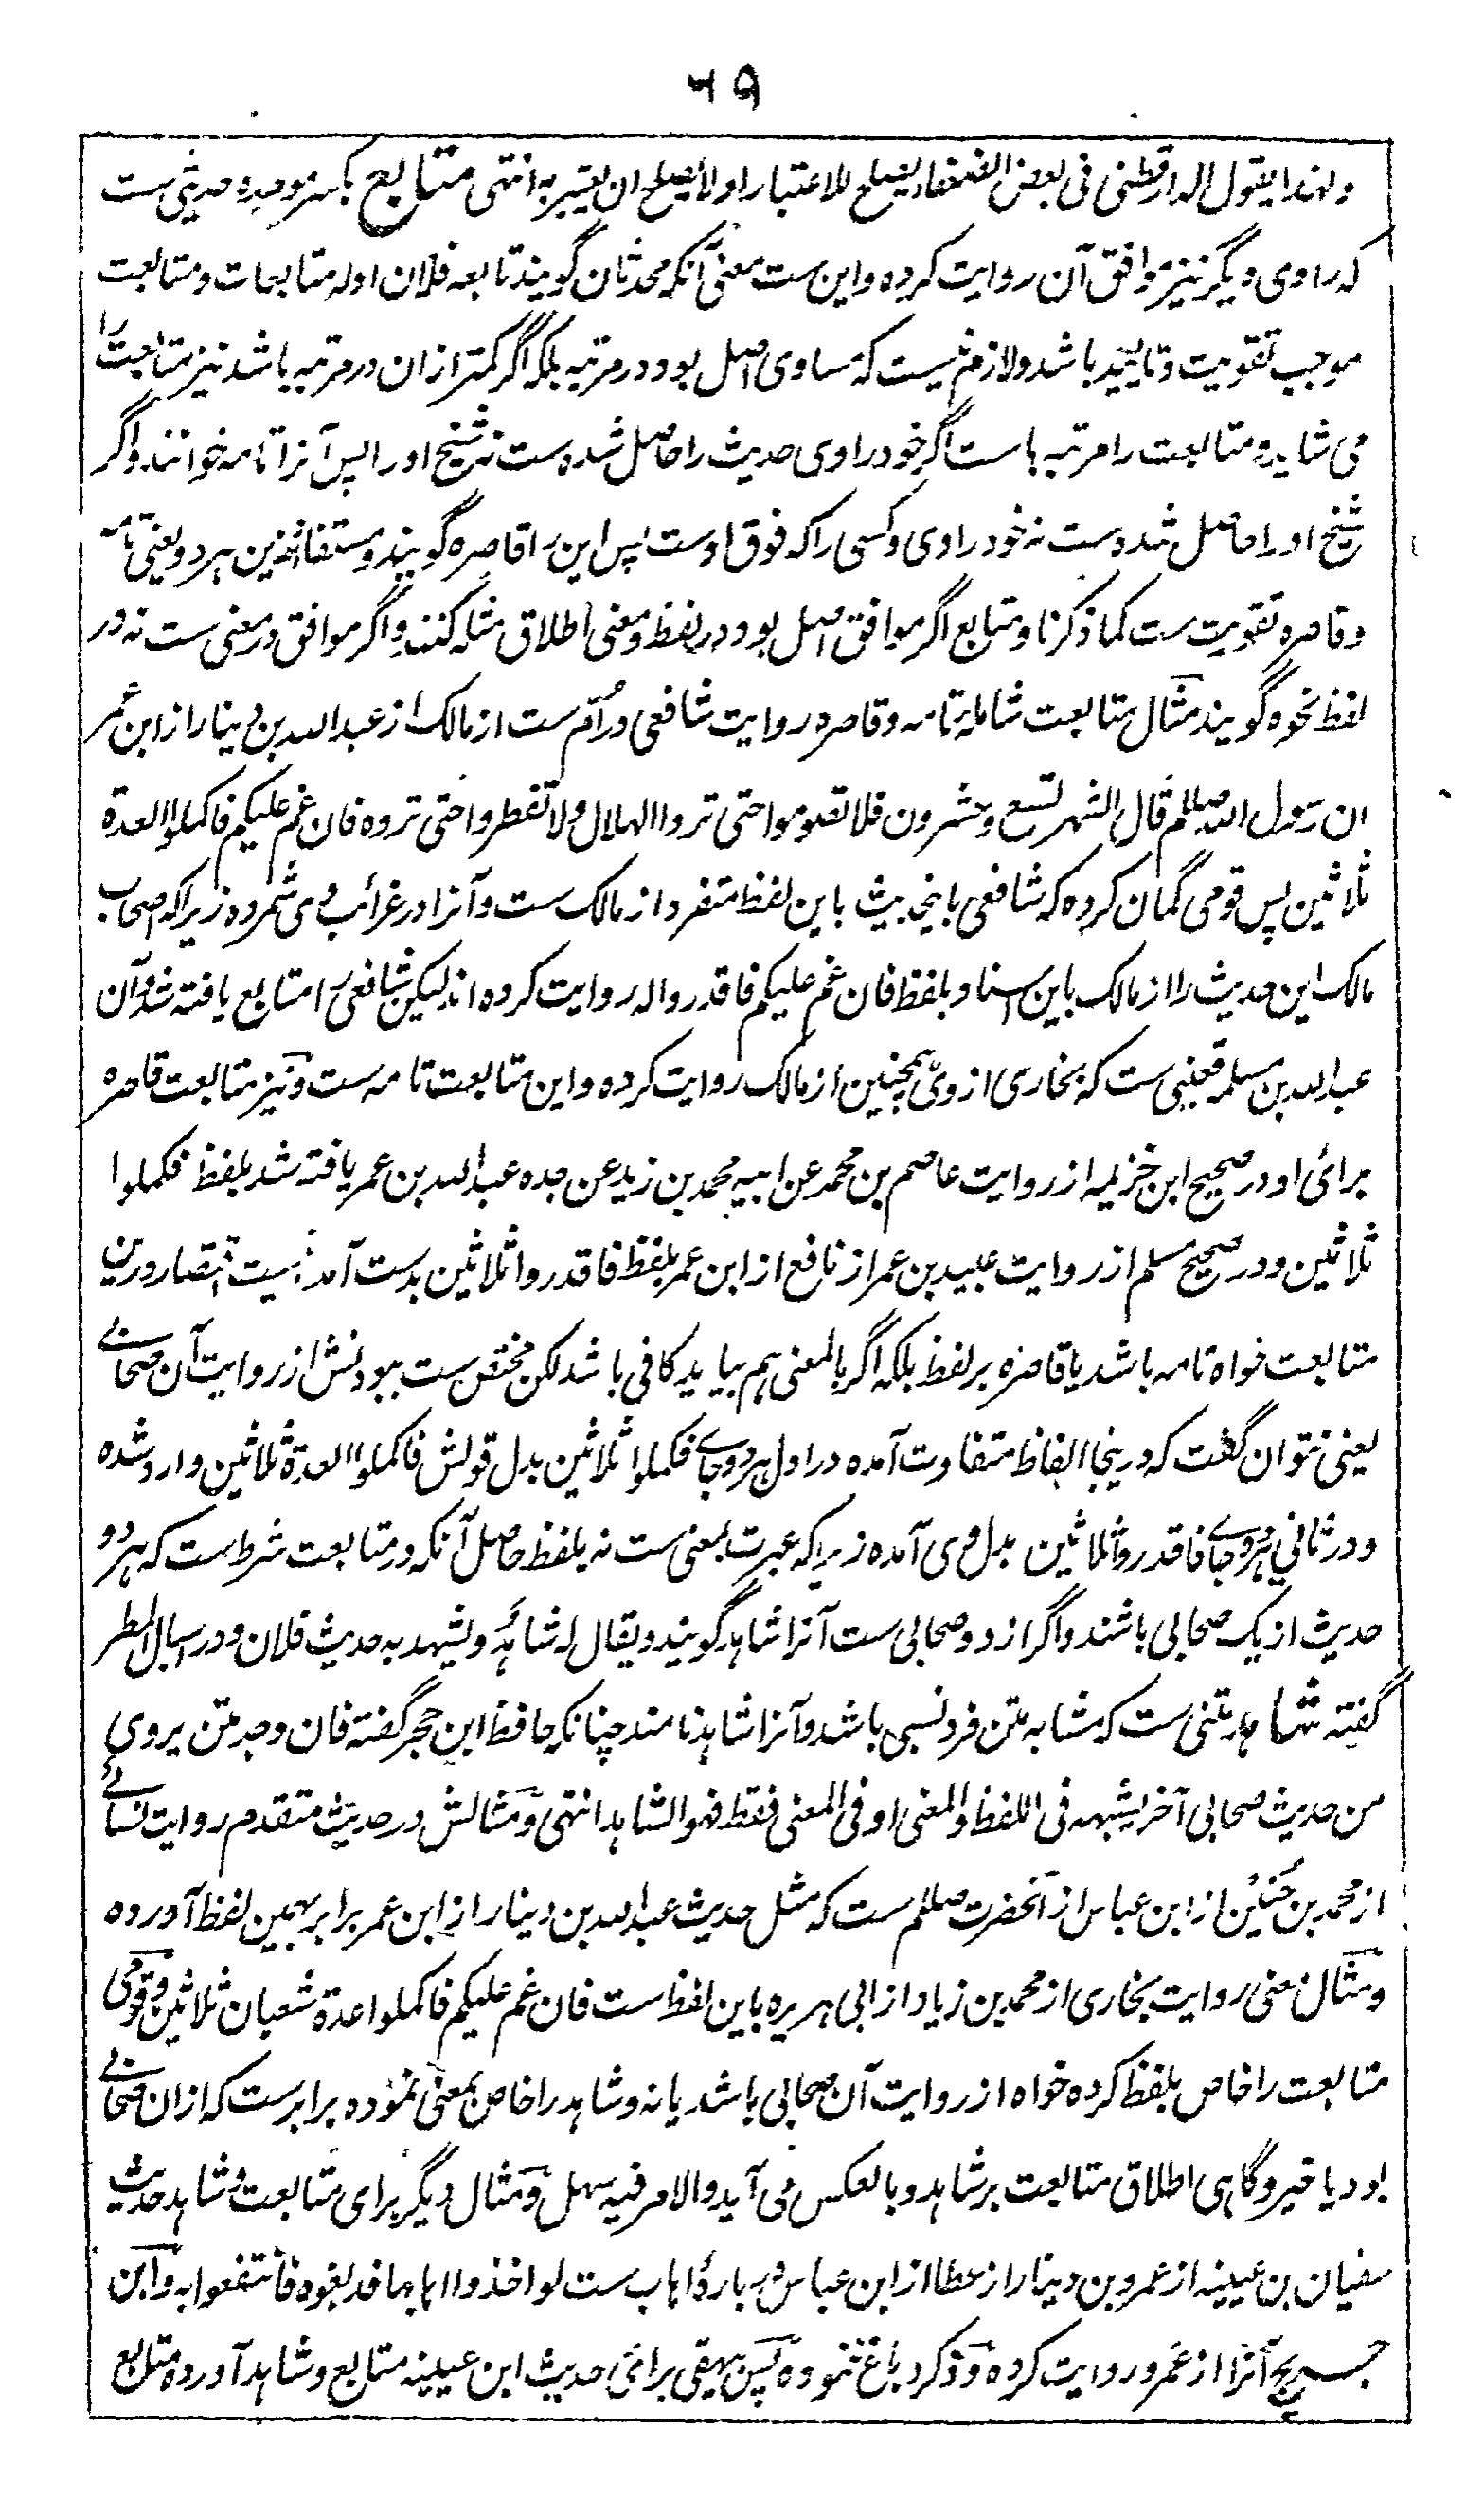 ۵۹
ولهذا یقول الدارقطنی فی بعض الضعفاء یصلح للاعتبار او لا یصلح ان یعتبر به انتهی متابع بکسر موحده حدیثی ست
که راوی دیگر نیز موافق آن روایت کرده و این ست معنی آنکه محدثان گویند تابعه فلان اوله متابعات و متابعت
موجب تقویت و تایید باشد و لازم نیست که مساوی اصل بود در مرتبه بلکه اگر کمتر ازان در مرتبه باشد نیز متابعت را
می شاید و متابعت را مرتبه هاست اگر خود راوی حدیث را حاصل شده ست نه شیخ او را پس آنرا تامه خوانند و اگر
شیخ او را حاصل شده ست نه خود راوی و کسی را که فوق اوست پس این را قاصره گویند و مستفاد ازین هر دو یعنی تامه
و قاصره تقویت ست کما ذکرنا و متابع اگر موافق اصل بود در لفظ و معنی اطلاق مثله کنند و اگر موافق در معنی ست نه در
لفظ نحوه گویند مثال متابعت شامله تامه و قاصره روایت شافعی در اُم ست از مالک از عبدالله بن دینار از ابن عمر
ان رسول الله صللم قال الشهر تسع و عشرون فلا تصوموا حتی تروا الهلال ولا تفطروا حتی تروه فان غم علیکم فاکملوا العدة
ثلاثین پس قومی گمان کرده که شافعی باینحدیث باین لفظ متفرد از مالک ست و آنرا در غرائب وی شمرده زیراکه اصحاب
مالک این حدیث را از مالک باین اسناد و بلفظ فان غم علیکم فاقدروا له روایت کرده اند لیکن شافعی را متابع یافته شد و آن
عبدالله بن مسلمه قعنبی ست که بخاری از وی همچنین از مالک روایت کرده و این متابعت تامه ست و نیز متابعت قاصره
برائ او در صحیح ابن خزیمه از روایت عاصم بن محمد عن ابیه محمد بن زید عن جده عبدالله بن عمر یافته شد بلفظ فکملوا
ثلاثین و در صحیح مسلم از روایت عبید بن عمر از نافع از ابن عمر بلفظ فاقدروا ثلاثین بدست آمد نیست اقتصار درین
متابعت خواه تامه باشد یا قاصره بر لفظ بلکه اگر بالمعنی هم بیاید کافی باشد لکن مختص ست ببودنش از روایت آن صحابے
یعنی نتوان گفت که درینجا الفاظ متفاوت آمده در اول هر دو جاے فکملوا ثلاثین بدل قولش فاکملوا العدة ثلاثین وارد شده
و در ثانی هر دو جاے فاقدروا ثلاثین بدل وی آمده زیراکه عبرت بمعنی ست نه بلفظ حاصل آنکه در متابعت شرط ست که هر دو
حدیث از یک صحابی باشند و اگر از دو صحابی ست آنرا شاهد گویند و یقال له شاهدٌ و یشهد به حدیث فلان و در اسبال المطر
گفته شاهد متنی ست که مشابه متن فرد نسبی باشد و آنرا شاهد نامند چنانکه حافظ ابن حجر گفته فان وجد متن یروی
من حدیث صحابی آخر یشبهه فی اللفظ والمعنی او فی المعنی فقط فهو الشاهد انتهی و مثالش در حدیث متقدم روایت نسائے
از محمد بن حُنَین از ابن عباس از آنحضرت صللم ست که مثل حدیث عبدالله بن دینار از ابن عمر برابر بهمین لفظ آورده
و مثال معنی روایت بخاری از محمد بن زیاد از ابی هریره باین لفظ ست فان غم علیکم فاکملوا عدة شعبان ثلاثین و قومی
متابعت را خاص بلفظ کرده خواه از روایت آن صحابی باشد یا نه و شاهد را خاص بمعنی نموده برابرست که ازان صحابے
بود یا غیر و گاهی اطلاق متابعت بر شاهد و بالعکس می آید والامر فیه سهل و مثال دیگر برای متابعت و شاهد حدیث
سفیان بن عیینه از عمرو بن دینار از عطا از ابن عباس در بارهٔ اهاب ست لو اخذوا اهابها فدبغوه فانتفعوا به و ابن
جریج آنرا از عمرو روایت کرده و ذکر دباغ ننموده پس بیهقی برائ حدیث ابن عیینه متابع و شاهد آورده متابع